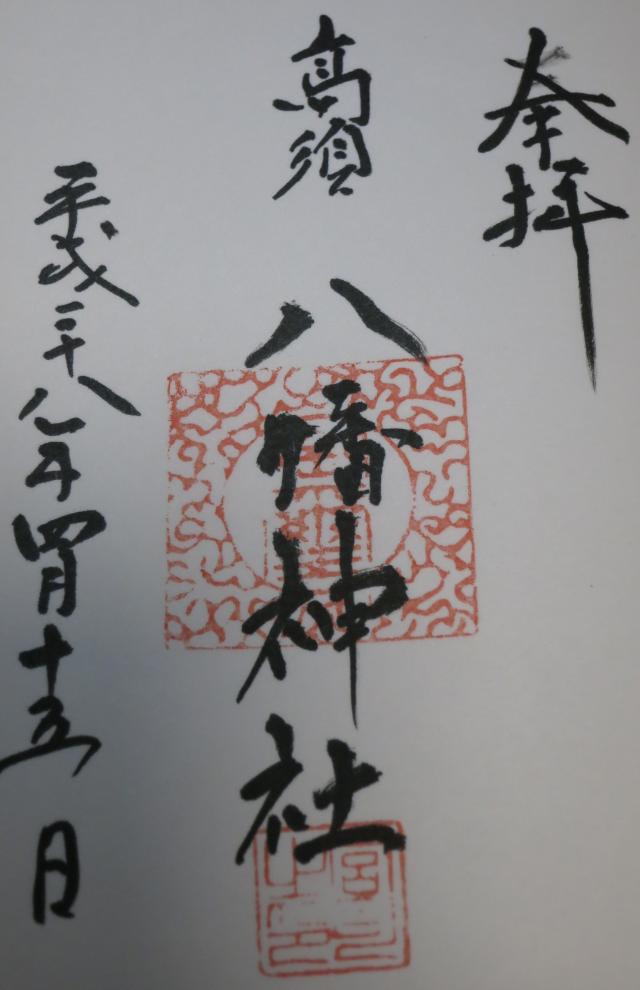 奉拝
高須
八幡神社
平成二十八年四月十五日